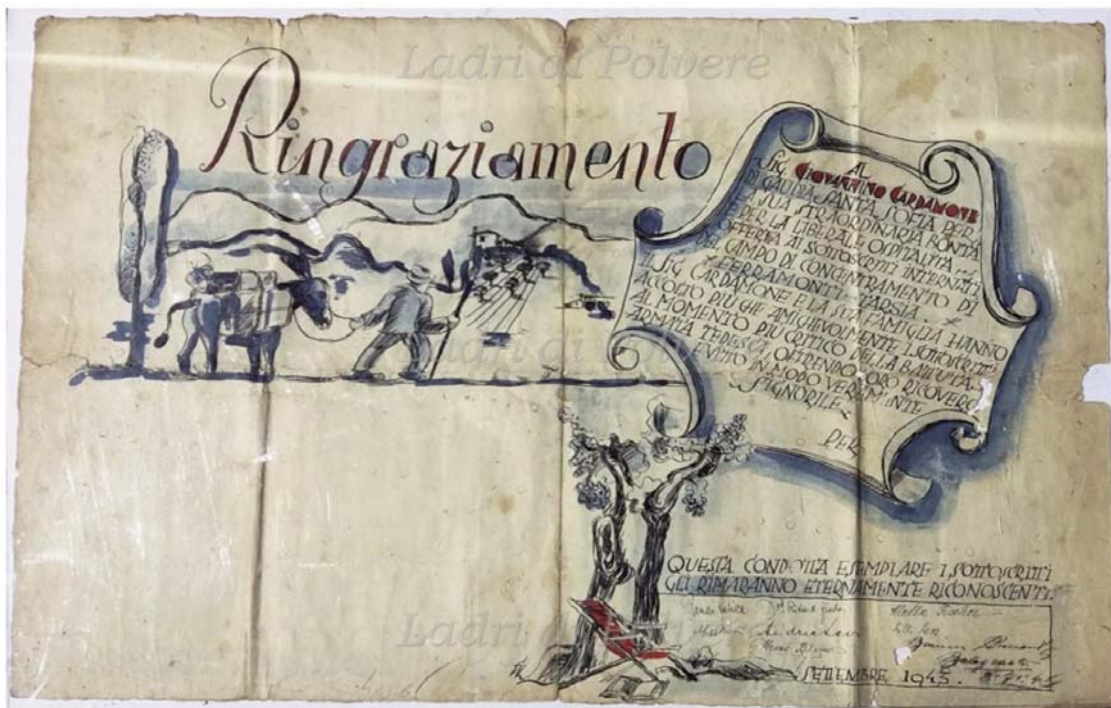 Ladri di Polvere
Ringraziamento
AL
SIG. GIOVANNINO CARDAMONE
DI CAUDIA SANTA SOFIA PER
SUA STRAORDINARIA BONTÀ
E PER LA LIBERALE OSPITALITÀ
OFFERTA AI SOTTOSCRITTI INTERNATI
DEL CAMPO DI CONCENTRAMENTO DI
FERRAMONTI-TARSIA
IL SIG. CARDAMONE E LA SUA FAMIGLIA HANNO
ACCOLTO PIÙ CHE AMICHEVOLMENTE I SOTTOSCRITTI
AL MOMENTO PIÙ CRITICO DELLA BATTUTA
ARMATA TEDESCA, OFFRENDO LORO RICOVERO
E VITTO IN MODO VERAMENTE
SIGNORILE
PER
Ladri di Polvere
QUESTA CONDOTTA ESEMPLARE I SOTTOSCRITTI
GLI RIMARANNO ETERNAMENTE RICONOSCENTI.
Ladri di
SETTEMBRE 1943.